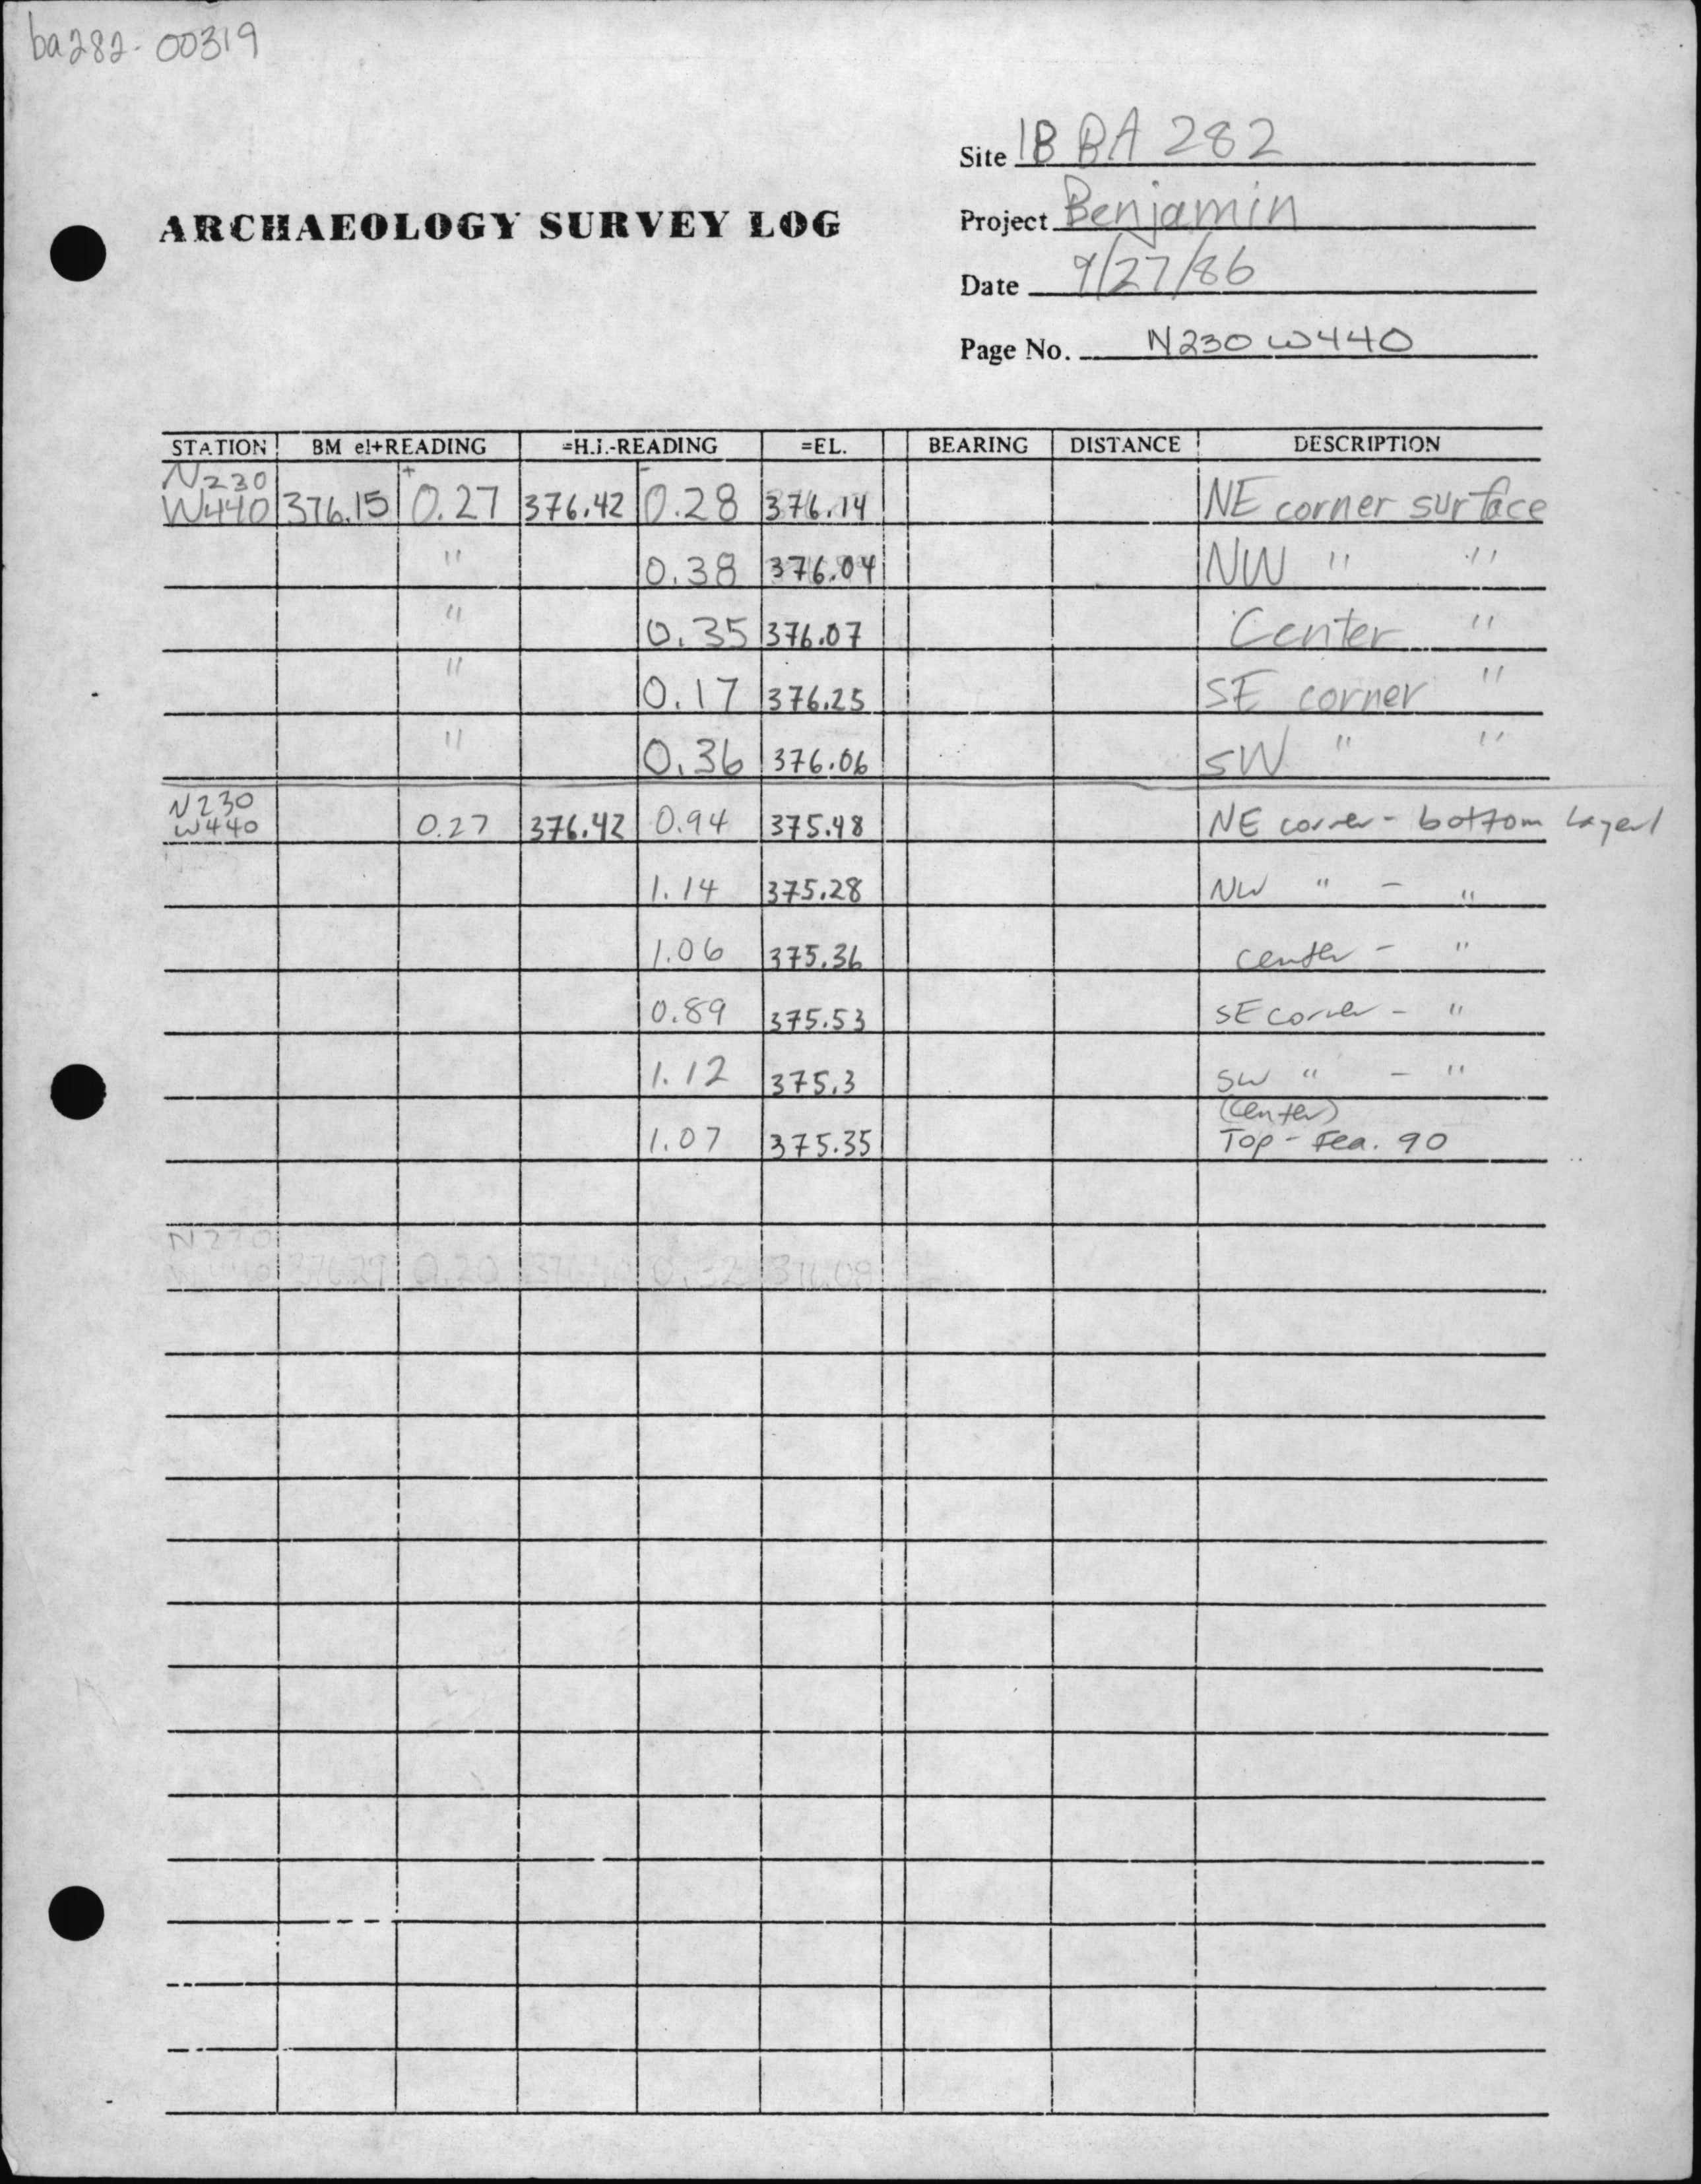 ba282-00319
Site 18 BA 282
ARCHAEOLOGY SURVEY LOG
Project Benjamin
Date 9/27/86
Page No. N230 W440
STATION BM el+READING =H.I.-READING =EL. BEARING DISTANCE DESCRIPTION
N230 + -
W440 376.15 0.27 376.42 0.28 376.14 NE corner surface
" 0.38 376.04 NW " "
" 0.35 376.07 Center "
" 0.17 376.25 SE corner "
" 0.36 376.06 SW " "
N230
W440 0.27 376.42 0.94 375.48 NE corner - bottom Layer 1
1.14 375.28 NW " - "
1.06 375.36 center - "
0.89 375.53 SE corner - "
1.12 375.3 SW " - "
(center)
1.07 375.35 Top - Fea. 90